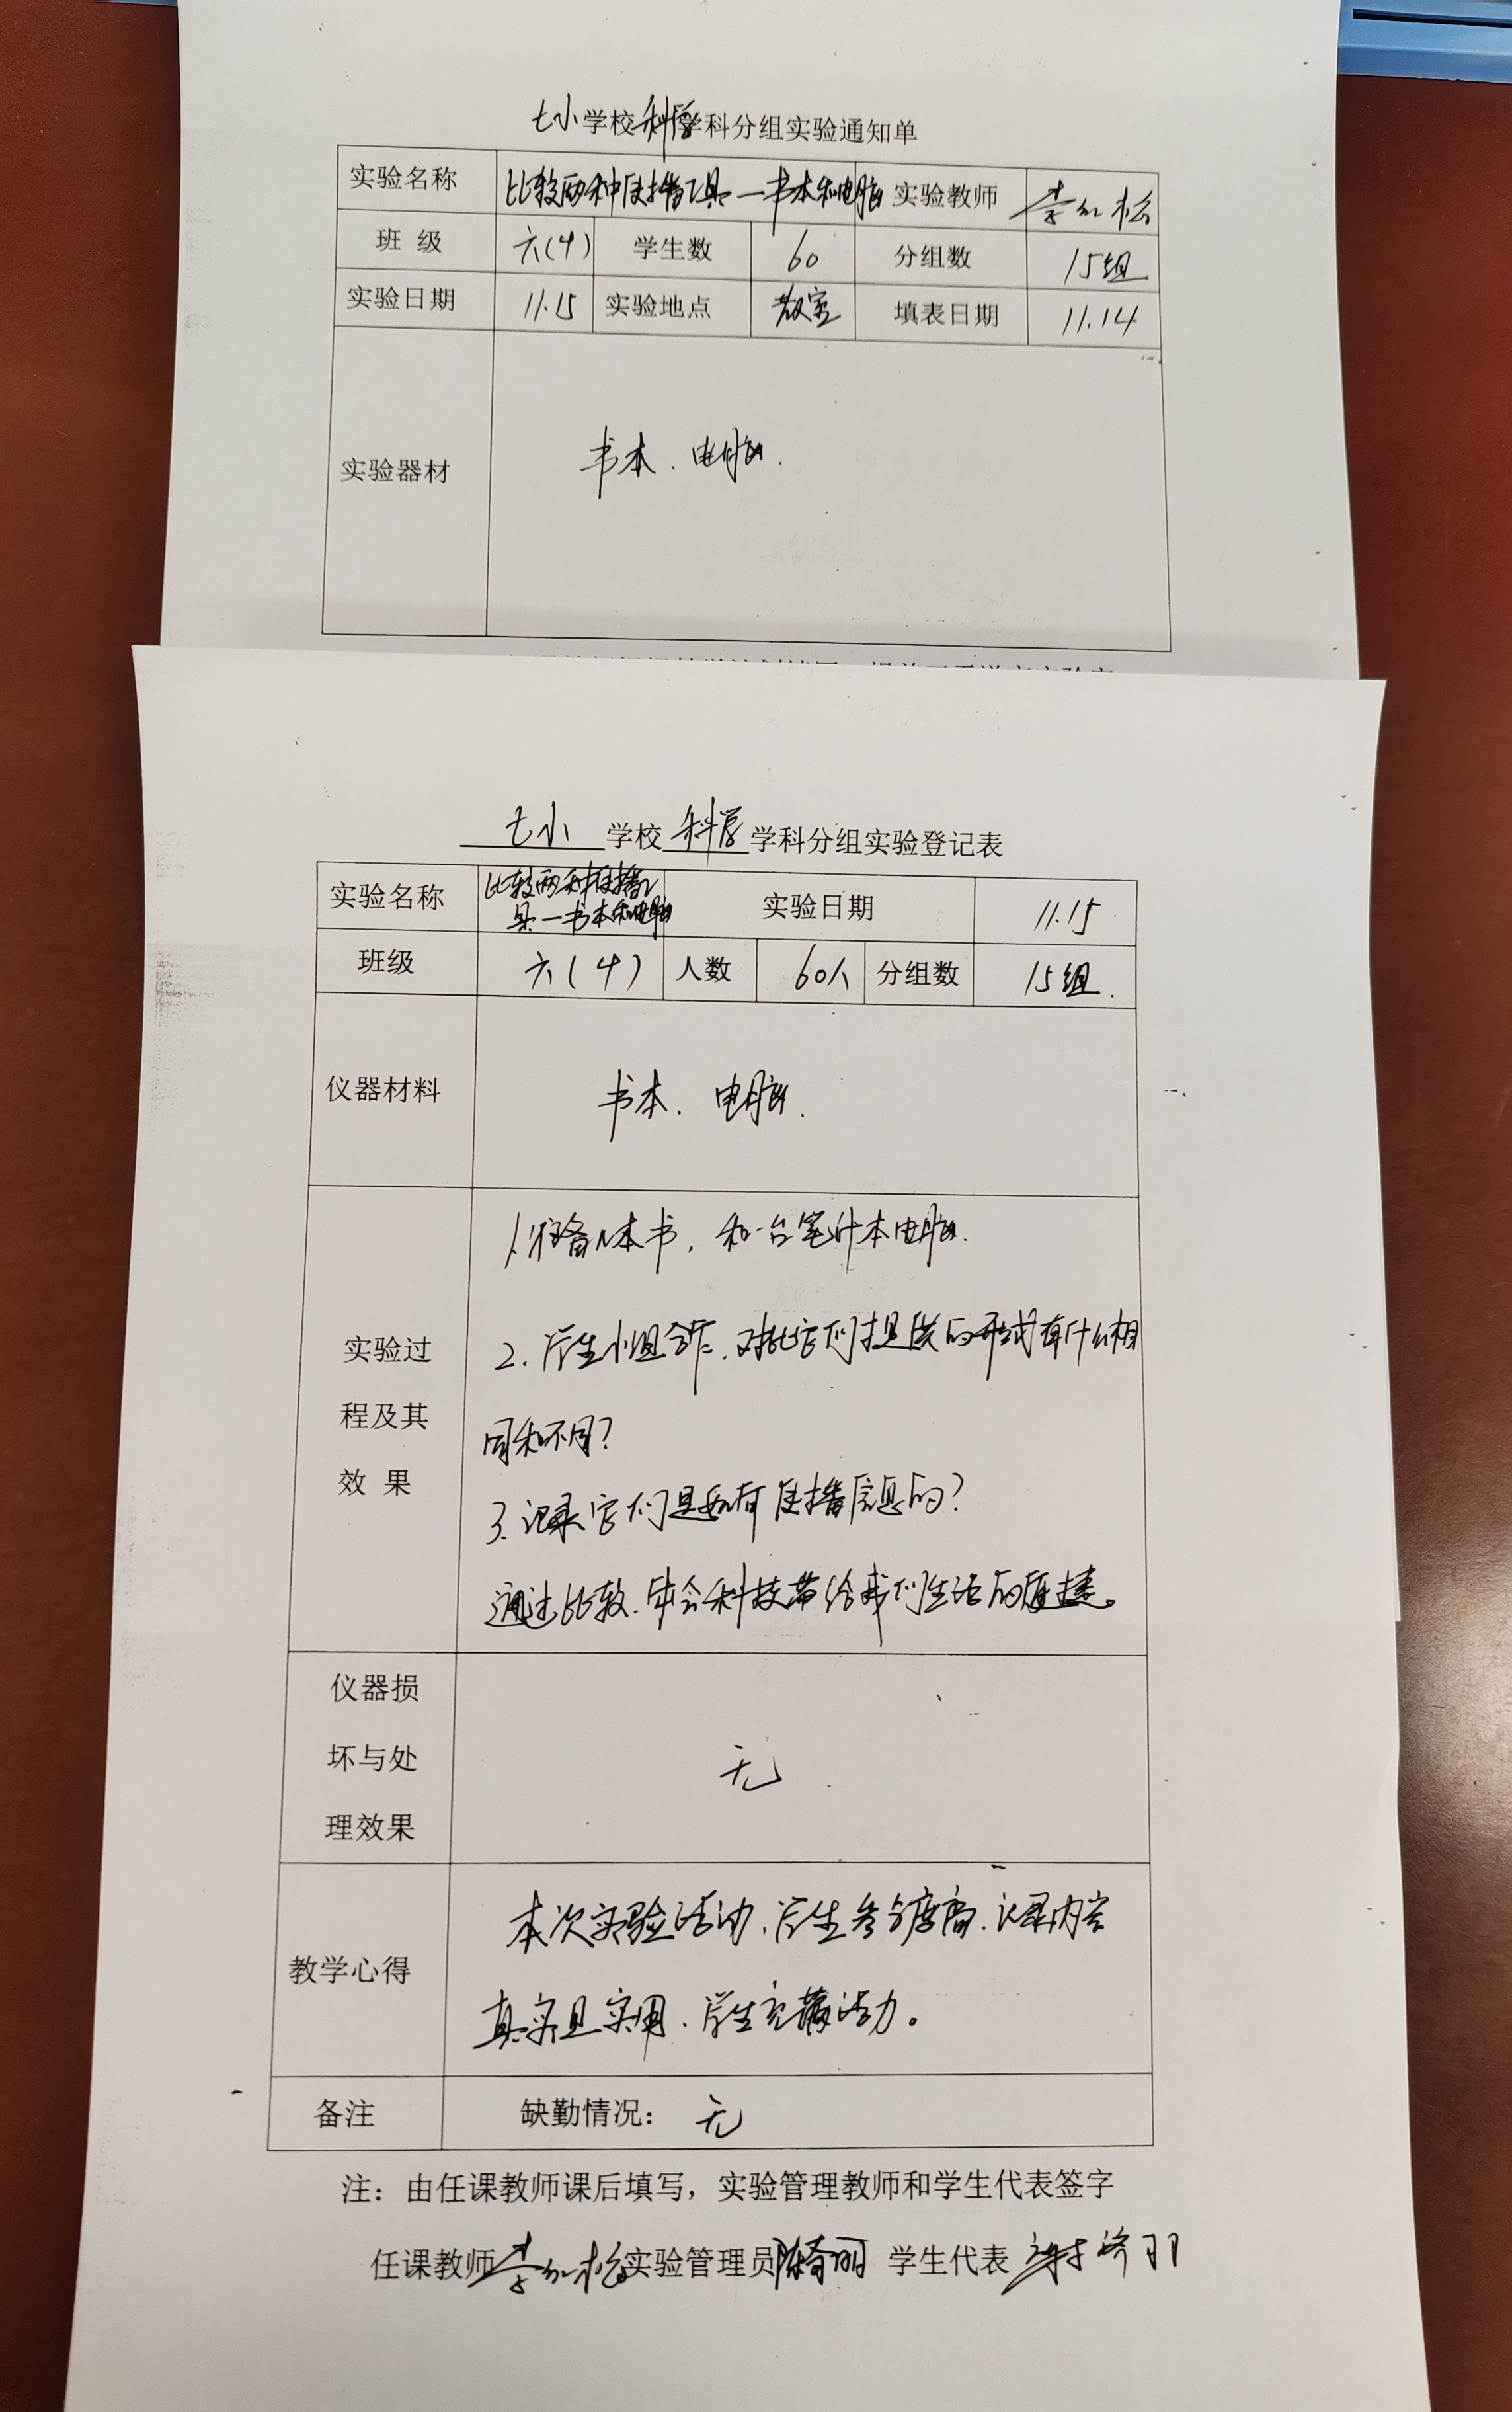 七小学校科学学科分组实验通知单
实验名称 比较两种传播工具—书本和电脑 实验教师 李红松
班 级 六(4) 学生数 60 分组数 15组
实验日期 11.15 实验地点 教室 填表日期 11.14
实验器材 书本、电脑.
七小 学校 科学 学科分组实验登记表
实验名称 比较两种传播工
具—书本和电脑 实验日期 11.15
班级 六(4) 人数 60人 分组数 15组.
仪器材料 书本、电脑.
1.准备几本书,和一台笔计本电脑.
2.学生小组合作,对比它们提供的形式有什么相
同和不同?
3.记录它们是如何传播信息的?
通过比较,体会科技带给我们生活的便捷。
实验过
程及其
效 果
仪器损
坏与处
理效果
无
本次实验活动,学生参与度高,记录内容
真实且实用,学生充满活力。
教学心得
备注 缺勤情况: 无
注:由任课教师课后填写,实验管理教师和学生代表签字
任课教师李红松实验管理员陈奇丽 学生代表